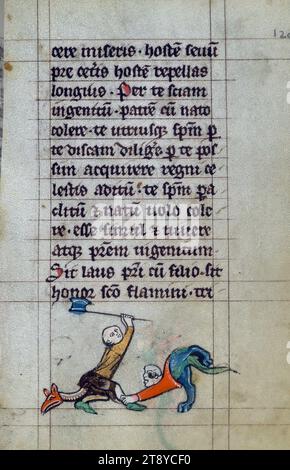 cere miseris · hostē seuū
pre cetis hostē repellas
longius · Per te sciam
ingenitū · patrē cū nato
colere · te utriusq; spm̄ p
te discam dilig̃e · p te pos
sim acquirere regni ce
lestis aditū · te spm̄ pa
clitū natū uolo cole
re · esse simul uiuere
atq; prēm ingenitum ·
Sit laus pri cū filio · sit
honor sco flamini · tri
a
alamy
Image ID: 2T8YCF0
www.alamy.com